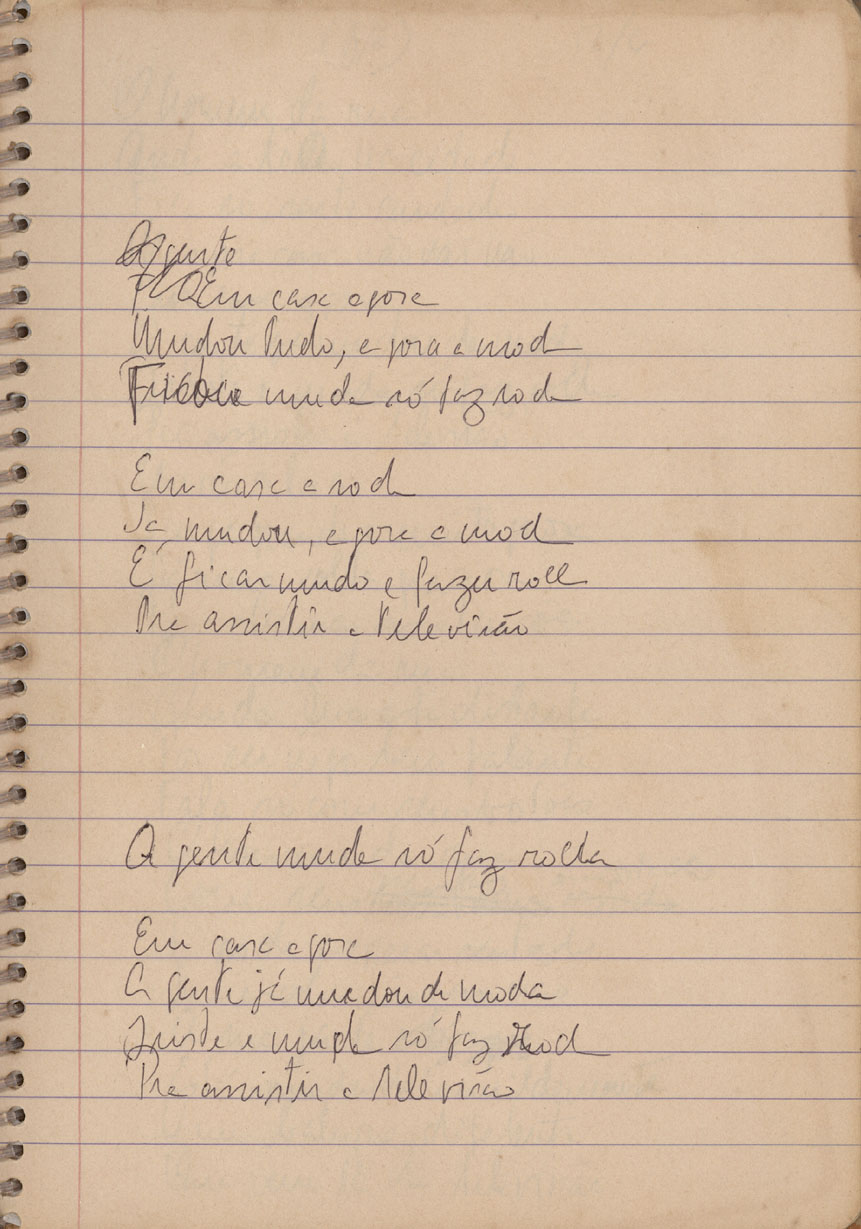 A gente
Em casa agora
Mudou tudo, agora a moda
muda só faz roda
Em casa a roda
Já mudou, agora a moda
É ficar mudo e fazer roda
Pra assistir a televisão
A gente muda só faz rodda
Em casa agora
A gente já mudou de moda
Triste e muda só faz roda
Pra assistir a televisão